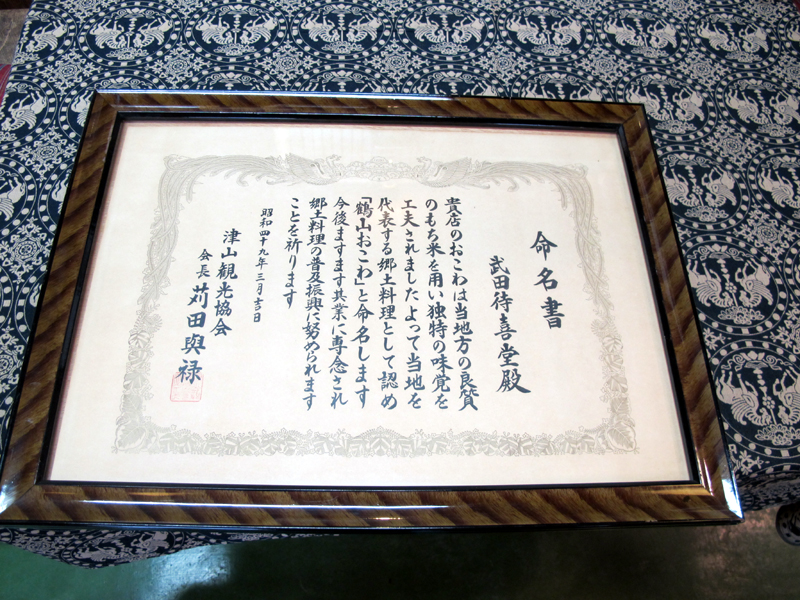 命名書
武田待喜堂殿
貴店のおこわは当地方の良質
のもち米を用い独特の味覚を
工夫されましたよって当地を
代表する郷土料理として認め
「鶴山おこわ」と命名します
今後ますます其業に専念され
郷土料理の普及振興に努められます
ことを祈ります
昭和四十九年三月吉日
津山観光協会
会長 苅田與禄